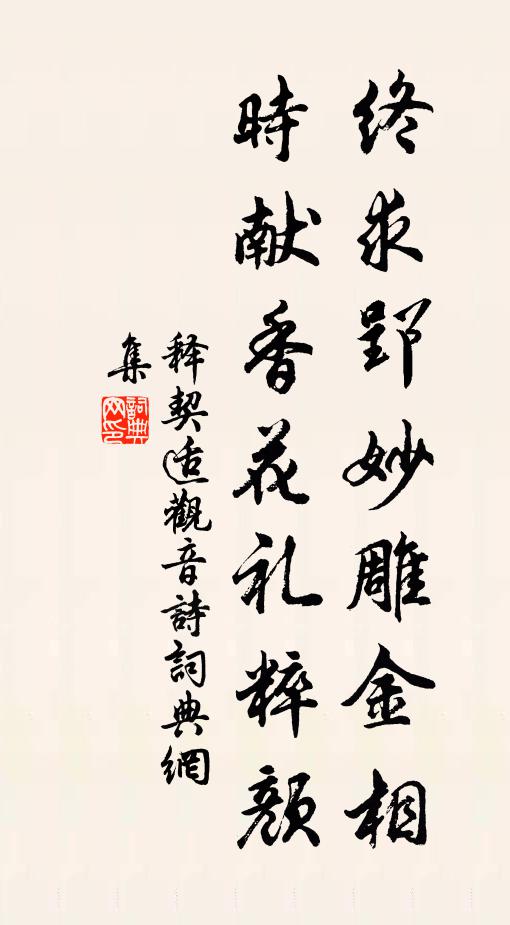 终求郢妙雕金相
時献香花礼粹颜
释契适觀音詩詞典網
集
詞典
网印